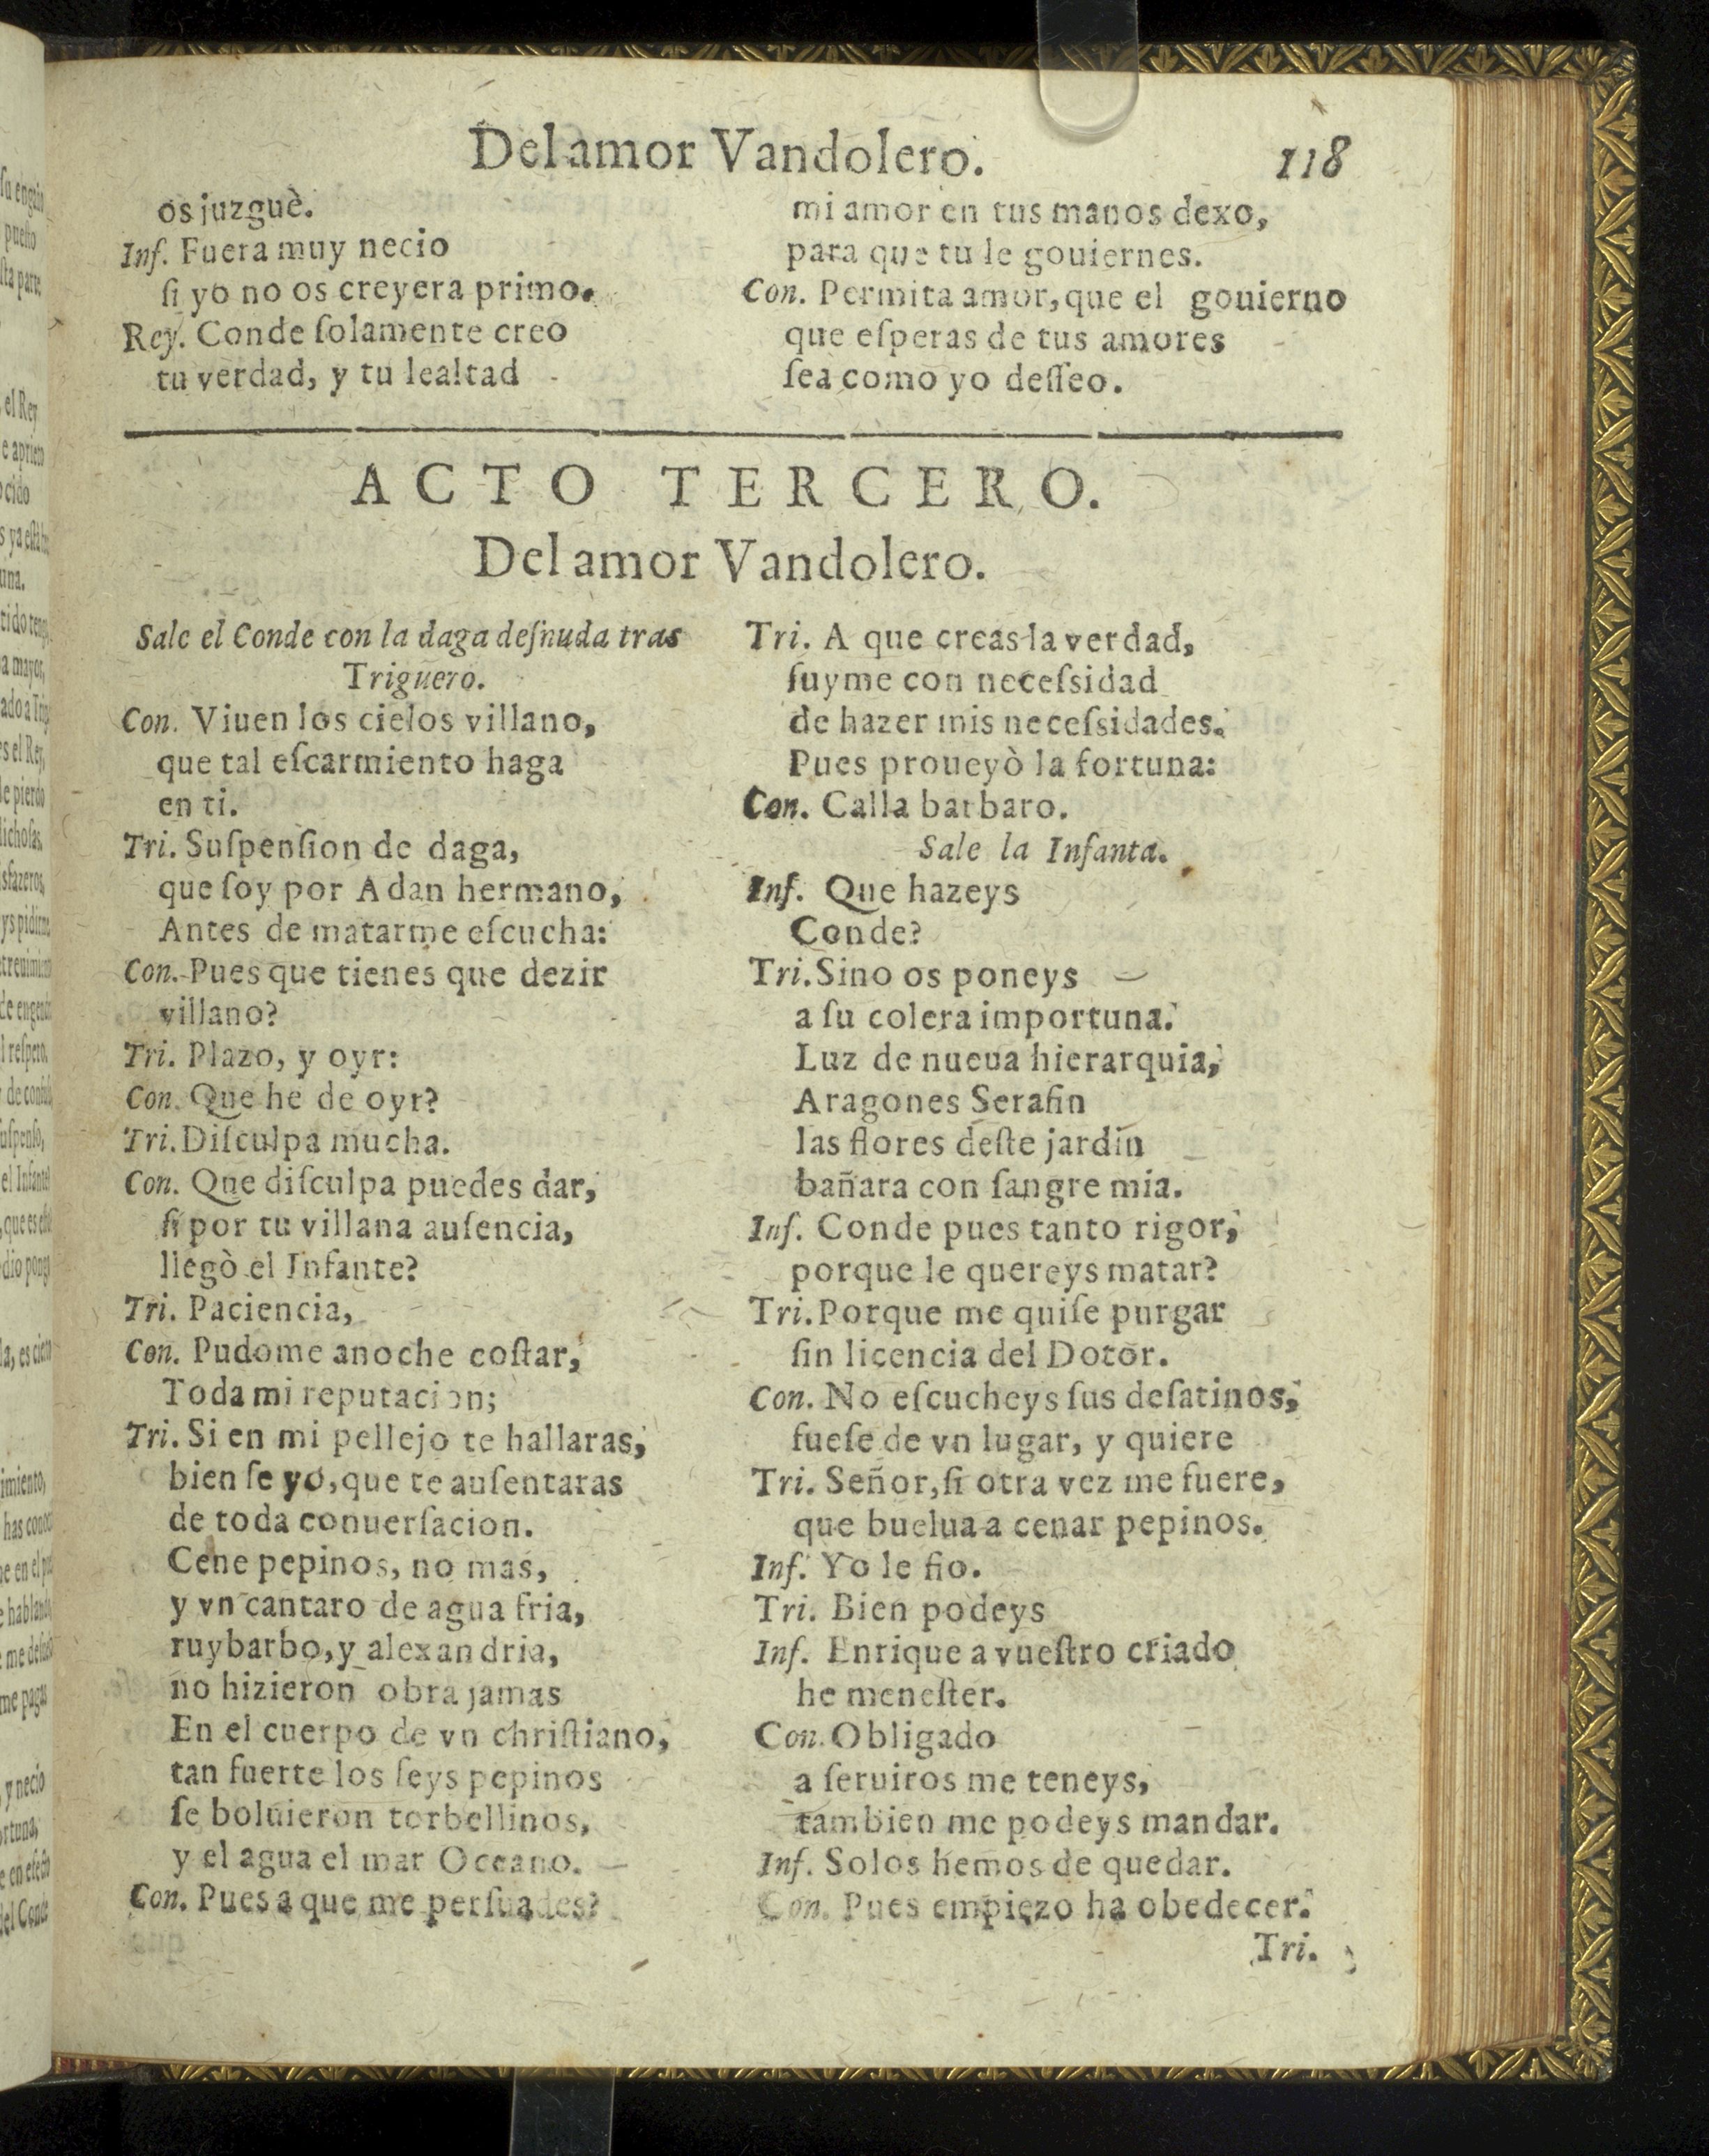 Del amor Vandolero. 118
os juzguè.
Inf. Fuera muy necio
ſi yo no os creyera primo.
Rey. Conde ſolamente creo
tu verdad, y tu lealtad
mi amor en tus manos dexo,
para que tu le gouiernes.
Con. Permita amor, que el gouierno
que eſperas de tus amores
ſea como yo deſſeo.
ACTO TERCERO.
Del amor Vandolero.
Sale el Conde con la daga deſnuda tras
Triguero.
Con. Viuen los cielos villano,
que tal eſcarmiento haga
en ti.
Tri. Suſpenſion de daga,
que ſoy por Adan hermano,
Antes de matarme eſcucha:
Con. Pues que tienes que dezir
villano?
Tri. Plazo, y oyr:
Con. Que he de oyr?
Tri. Diſculpa mucha.
Con. Que diſculpa puedes dar,
ſi por tu villana auſencia,
llegò el Infante?
Tri. Paciencia,
Con. Pudome anoche coſtar,
Toda mi reputacion;
Tri. Si en mi pellejo te hallaras,
bien ſe yo, que te auſentaras
de toda conuerſacion.
Cene pepinos, no mas,
y vn cantaro de agua fria,
ruybarbo, y alexandria,
no hizieron obra jamas
En el cuerpo de vn chriſtiano,
tan fuerte los ſeys pepinos
ſe boluieron torbellinos,
y el agua el mar Oceano.
Con. Pues a que me perſuades?
Tri. A que creas la verdad,
fuyme con neceſsidad
de hazer mis neceſsidades.
Pues proueyò la fortuna:
Con. Calla barbaro.
Sale la Infanta.
Inf. Que hazeys
Conde?
Tri. Sino os poneys
a ſu colera importuna.
Luz de nueua hierarquia,
Aragones Serafin
las flores deſte jardin
bañara con ſangre mia.
Inf. Conde pues tanto rigor,
porque le quereys matar?
Tri. Porque me quiſe purgar
ſin licencia del Dotor.
Con. No eſcucheys ſus deſatinos,
fueſe de vn lugar, y quiere
Tri. Señor, ſi otra vez me fuere,
que buelua a cenar pepinos.
Inf. Yo le fio.
Tri. Bien podeys
Inf. Enrique a vueſtro criado
he meneſter.
Con. Obligado
a ſeruiros me teneys,
tambien me podeys mandar.
Inf. Solos hemos de quedar.
Con. Pues empiezo ha obedecer.
Tri.